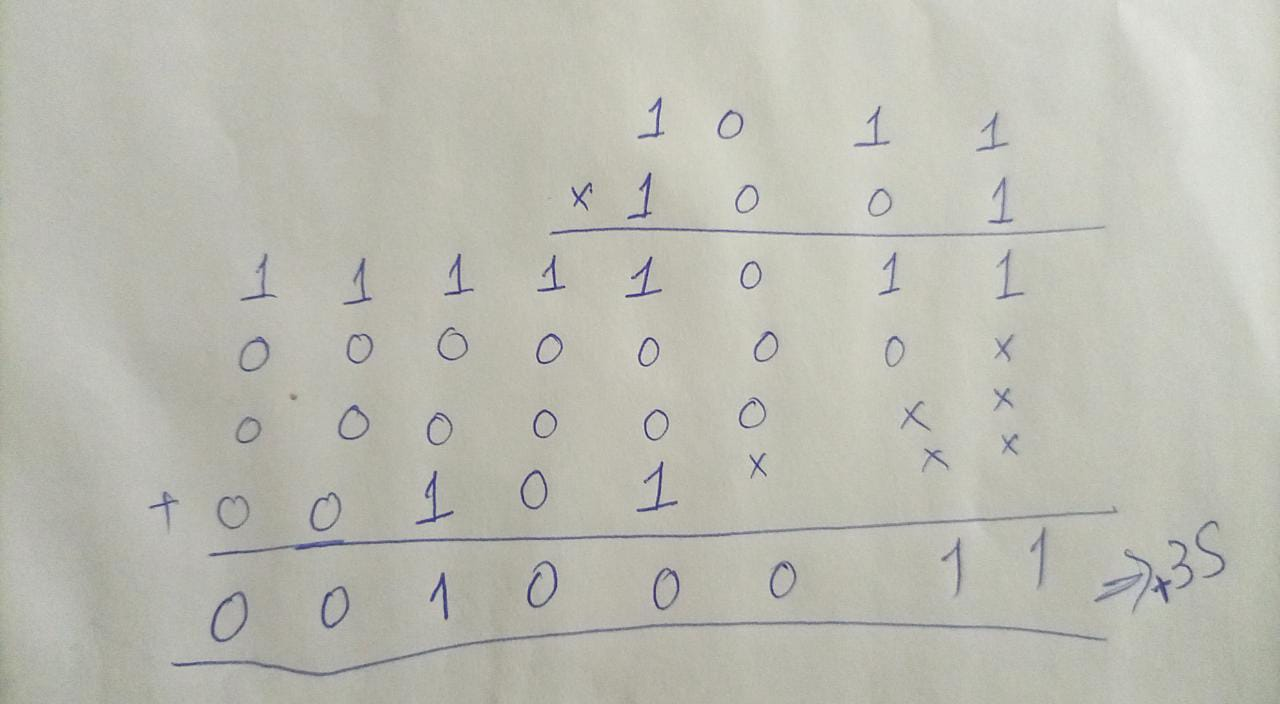 1 0 1 1
x 1 0 0 1
1 1 1 1 1 0 1 1
0 0 0 0 0 0 0 x
0 0 0 0 0 0 x x
+ 0 0 1 0 1 x x x
0 0 1 0 0 0 1 1 ⇒ +35